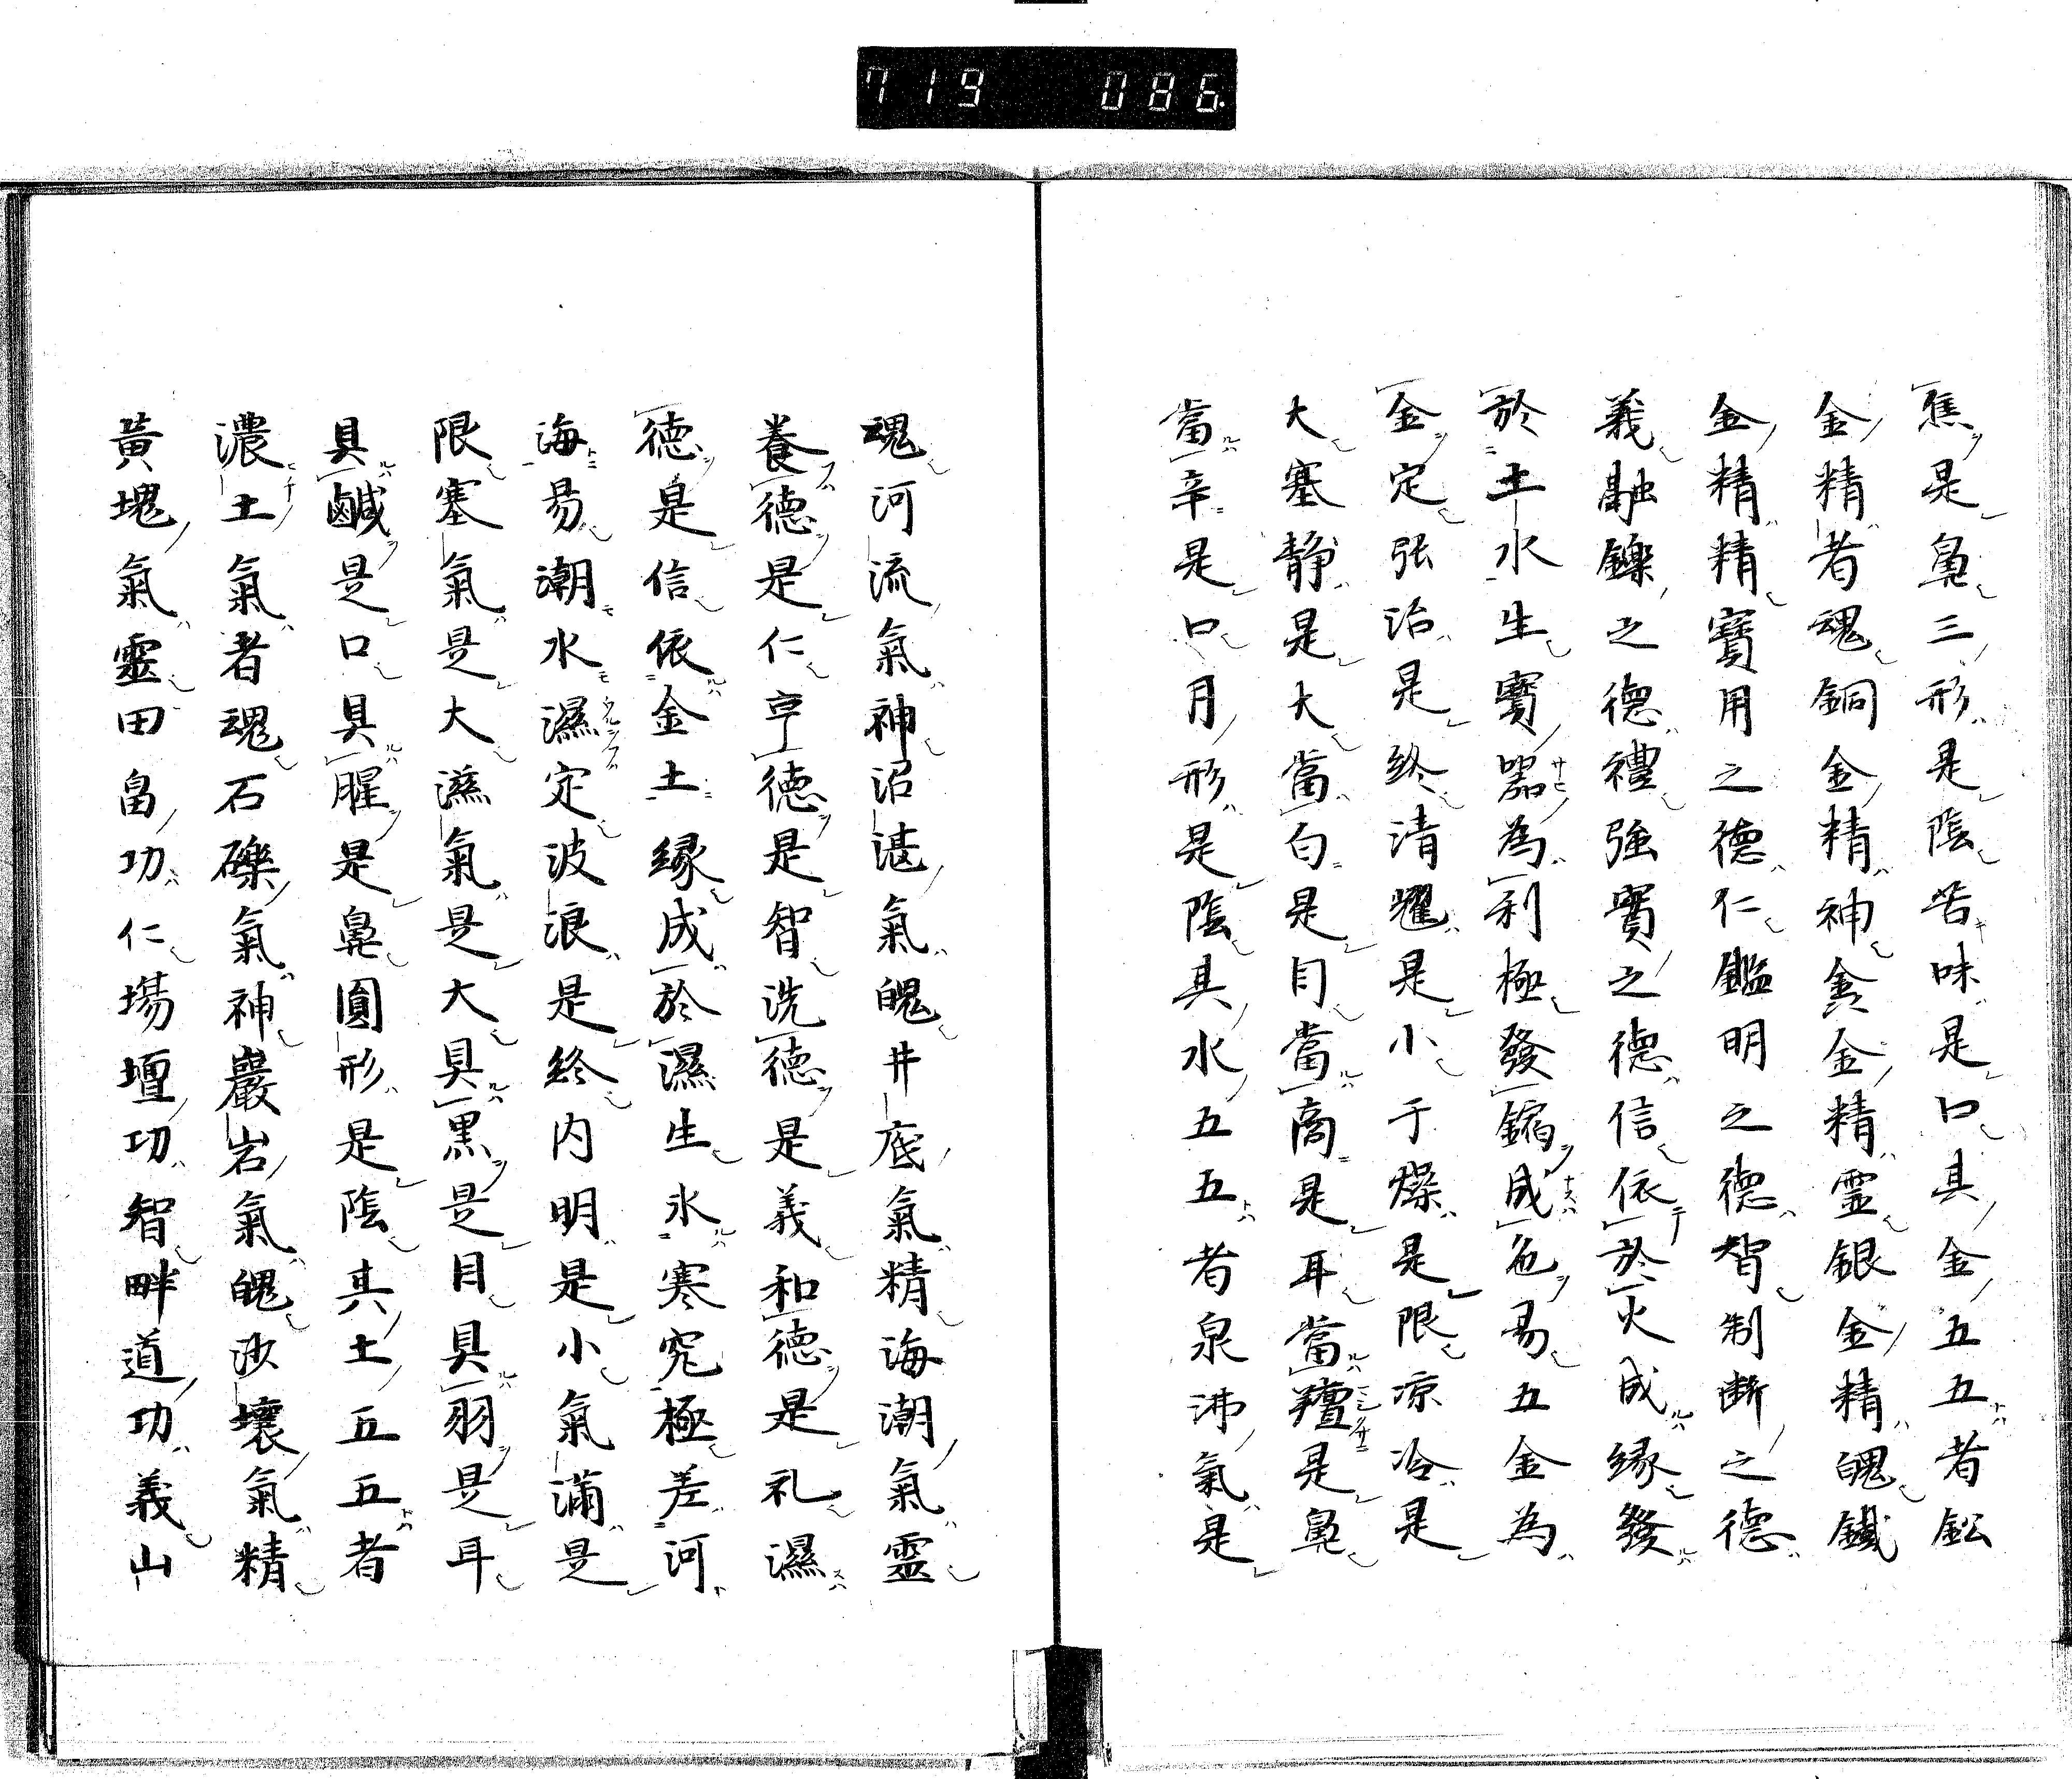 719 086
焦是鼻三形是陰苦味是口其金五五者鈆
金精者魂銅金精神金精靈銀金精魄鐵
金精精寳用之德仁鑑明之德智制断之德
義融鑠之德禮強實之德信依於火成縁發
於土水生寳器為利極發鎔成色易五金為
金定張治是終清耀是小于燥是限凉冷是
大塞静是大當白是目當商是耳當羶是鼻
當辛是口月形是陰具水五五者泉沸氣是
魂河流氣神沼湛氣魄井底氣精海潮氣靈
養德是仁亨德是智洗德是義和德是礼濕
德是信依金土縁成於濕生水寒究極差河
海易潮水濕定波浪是終内明是小氣満是
限塞氣是大濕氣是大具黒是目具羽是耳
具鹹是口具腥是鼻圓形是陰其土五五者
濃土氣者魂石礫氣神巖岩氣魄沙壤氣精
黃塊氣靈田畠功仁場壇功智畔道功義山